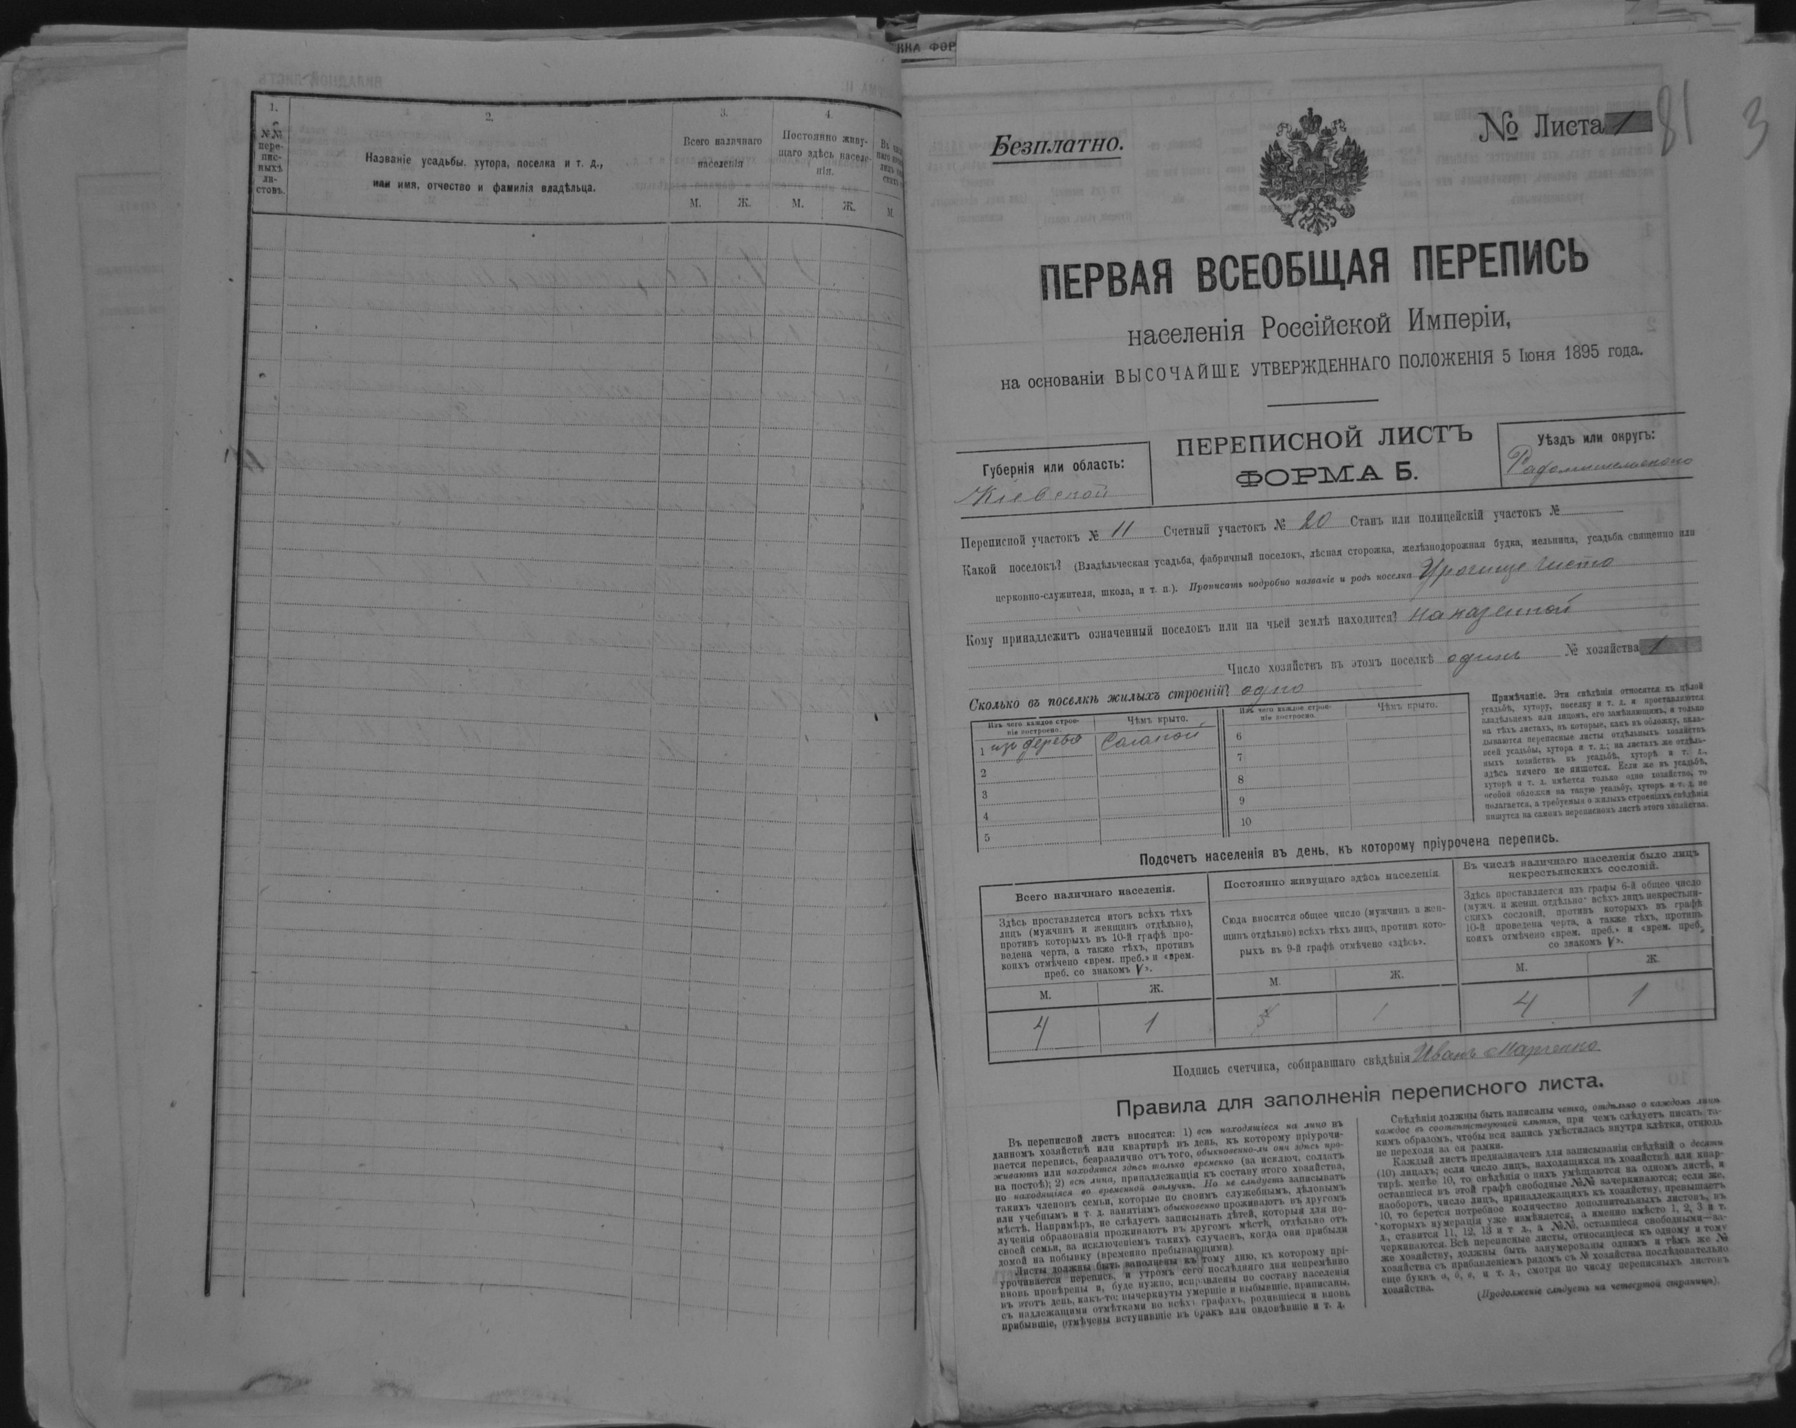 1.
№№ пере-
пис-
ныхъ
ли-
стовъ.
2.
Названіе усадьбы, хутора, поселка и т. д.,
или имя, отчество и фамилія владѣльца.
3.
Всего наличнаго
населенія
М. Ж.
4
Постоянно живу-
щаго здѣсь населе-
нія.
М. Ж.
М.
КНА ФОР
Безплатно.
№ Листа 1
81
3
ПЕРВАЯ ВСЕОБЩАЯ ПЕРЕПИСЬ
населенія Россійской Имперіи,
на основаніи ВЫСОЧАЙШЕ УТВЕРЖДЕННАГО ПОЛОЖЕНІЯ 5 Іюня 1895 года.
Губернія или область:
Кіевской
ПЕРЕПИСНОЙ ЛИСТЪ
ФОРМА Б.
Уѣздъ или округъ:
Радомысльскаго
Переписной участокъ № 11 Счетный участокъ № 20 Станъ или полицейскій участокъ №
Какой поселокъ? (Владѣльческая усадьба, фабричный поселокъ, лѣсная сторожка, желѣзнодорожная будка, мельница, усадьба священно или
церковно-служителя, школа, и т. п.). Прописать подробно названіе и родъ поселка Урочище
Кому принадлежитъ означенный поселокъ или на чьей землѣ находится? на казенной
Число хозяйствъ въ этомъ поселкѣ одинъ № хозяйства 1
Сколько въ поселкѣ жилыхъ строеній? одно
Изъ чего каждое строе-
ніе построено.
Чѣмъ крыто.
Изъ чего каждое строе-
ніе построено.
Чѣмъ крыто.
1 изъ дерева Соломой
2
3
4
5
6
7
8
9
10
Примѣчаніе. Эти свѣдѣнія относятся къ цѣлой
усадьбѣ, хутору, поселку и т. д. и проставляются
владѣльцемъ или лицомъ, его замѣняющимъ, и только
на тѣхъ листахъ, въ которые, какъ въ обложку, вкла-
дываются переписные листы отдѣльныхъ хозяйствъ
всей усадьбы, хутора и т. д.; на листахъ же отдѣль-
ныхъ хозяйствъ въ усадьбѣ, хуторѣ и т. д.,
здѣсь ничего не пишется. Если же въ усадьбѣ,
хуторѣ и т. д. имѣется только одно хозяйство, то
особой обложки на такую усадьбу, хуторъ и т. д. не
полагается, а требуемыя о жилыхъ строеніяхъ свѣдѣнія
пишутся на самомъ переписномъ листѣ этого хозяйства.
Подсчетъ населенія въ день, къ которому пріурочена перепись.
Всего наличнаго населенія.
Здѣсь проставляется итогъ всѣхъ тѣхъ
лицъ (мужчинъ и женщинъ отдѣльно),
противъ которыхъ въ 10-й графѣ про-
ведена черта, а также тѣхъ, противъ
коихъ отмѣчено «врем. преб.» и «врем.
преб. со знакомъ V».
М. Ж.
4 1
Постоянно живущаго здѣсь населенія.
Сюда вносится общее число (мужчинъ и жен-
щинъ отдѣльно) всѣхъ тѣхъ лицъ, противъ кото-
рыхъ въ 9-й графѣ отмѣчено «здѣсь».
М. Ж.
1
Въ числѣ наличнаго населенія было лицъ
некрестьянскихъ сословій.
Здѣсь проставляется изъ графы 6-й общее число
(мужч. и женщ. отдѣльно) всѣхъ лицъ некрестьян-
скихъ сословій, противъ которыхъ въ графѣ
10-й проведена черта, а также тѣхъ, противъ
коихъ отмѣчено «врем. преб.» и «врем. преб.
со знакомъ V».
М. Ж.
4 1
Подпись счетчика, собиравшаго свѣдѣнія Иванъ Марченко
Правила для заполненія переписного листа.
Въ переписной листъ вносятся: 1) всѣ находящіеся на лицо въ
данномъ хозяйствѣ или квартирѣ въ день, къ которому пріурочи-
вается перепись, безразлично отъ того, обыкновенно-ли они здѣсь про-
живаютъ или находятся здѣсь только временно (за исключ. солдатъ
на постоѣ); 2) всѣ лица, принадлежащія къ составу этого хозяйства,
но находящіяся во временной отлучкѣ. Но не слѣдуетъ записывать
такихъ членовъ семьи, которые по своимъ служебнымъ, дѣловымъ
или учебнымъ и т. д. занятіямъ обыкновенно проживаютъ въ другомъ
мѣстѣ. Напримѣръ, не слѣдуетъ записывать дѣтей, которыя для по-
лученія образованія проживаютъ въ другомъ мѣстѣ, отдѣльно отъ
своей семьи, за исключеніемъ такихъ случаевъ, когда они прибыли
домой на побывку (временно пребывающими).
Листы должны быть заполнены къ тому дню, къ которому прі-
урочивается перепись, и утромъ сего послѣдняго дня непремѣнно
вновь провѣрены и, буде нужно, исправлены по составу населенія
въ этотъ день, какъ-то: вычеркнуты умершіе и выбывшіе, приписаны,
съ надлежащими отмѣтками во всѣхъ графахъ, родившіеся и вновь
прибывшіе, отмѣчены вступившіе въ бракъ или овдовѣвшіе и т. д.
Свѣдѣнія должны быть написаны четко, отдѣльно о каждомъ лицѣ
каждое въ соотвѣтствующей клѣткѣ, при чемъ слѣдуетъ писать та-
кимъ образомъ, чтобы вся запись умѣстилась внутри клѣтки, отнюдь
не переходя за ея рамки.
Каждый листъ предназначенъ для записыванія свѣдѣній о десяти
(10) лицахъ; если число лицъ, находящихся въ хозяйствѣ или квар-
тирѣ, менѣе 10, то свѣдѣнія о нихъ умѣщаются на одномъ листѣ, и
оставшіеся въ этой графѣ свободные №№ зачеркиваются; если же,
наоборотъ, число лицъ, принадлежащихъ къ хозяйству, превышаетъ
10, то берется потребное количество дополнительныхъ листовъ, въ
которыхъ нумерація уже измѣняется, а именно вмѣсто 1, 2, 3 и т.
д., ставятся 11, 12, 13 и т. д., а №№, оставшіеся свободными—за-
черкиваются. Всѣ переписные листы, относящіеся къ одному и тому
же хозяйству, должны быть занумерованы однимъ и тѣмъ же №
хозяйства съ прибавленіемъ рядомъ съ № хозяйства послѣдовательно
еще буквъ а, б, в, и т. д., смотря по числу переписныхъ листовъ
хозяйства.
(Продолженіе слѣдуетъ на четвертой страницѣ).